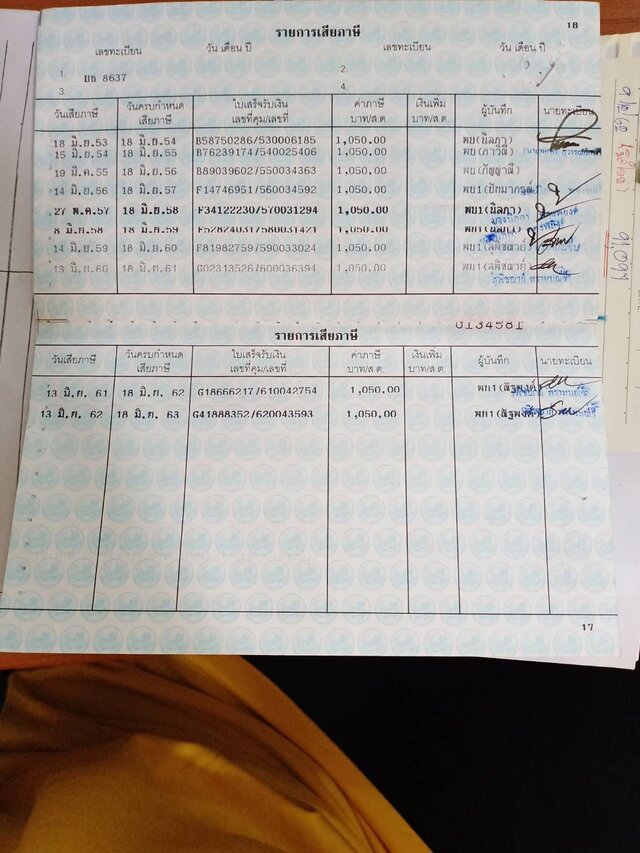 รายการเสียภาษี 16
เลขทะเบียน วัน เดือน ปี เลขทะเบียน วัน เดือน ปี
1. บท 8637 2.
3. 4.
วันเสียภาษี วันครบกำหนดเสียภาษี ใบเสร็จรับเงิน เลขที่คุม/เลขที่ ค่าภาษี บาท/ส.ต. เงินเพิ่ม บาท/ส.ต. ผู้บันทึก นายทะเบียน
18 มิ.ย.53 18 มิ.ย.54 B58750286/530006185 1,050.00 พย(นิลภา)
15 มิ.ย.54 18 มิ.ย.55 B76239174/540025406 1,050.00 พย(ภาวิลี)
19 มี.ค.55 18 มิ.ย.56 B89039602/550034363 1,050.00 พย(กัญญาลี)
14 มิ.ย.56 18 มิ.ย.57 F14746951/560034592 1,050.00 พย1
27 พ.ค.57 18 มิ.ย.58 F34122230/570031294 1,050.00 พย1(นิลภา)
8 มิ.ย.58 18 มิ.ย.59 F52824031/580031421 1,050.00 พย1(นิลภา)
14 มิ.ย.59 18 มิ.ย.60 F81982759/590033024 1,050.00 พย1(สุพิชฌาย์)
13 มิ.ย.60 18 มิ.ย.61 G02313526/600036394 1,050.00 พย1(สุพิชฌาย์)
รายการเสียภาษี 0134581
วันเสียภาษี วันครบกำหนดเสียภาษี ใบเสร็จรับเงิน เลขที่คุม/เลขที่ ค่าภาษี บาท/ส.ต. เงินเพิ่ม บาท/ส.ต. ผู้บันทึก นายทะเบียน
13 มิ.ย. 61 18 มิ.ย. 62 G18666217/610042754 1,050.00 พย1(ลัฐพงศ์)
13 มิ.ย. 62 18 มิ.ย. 63 G41888352/620043593 1,050.00 พย1(ลัฐพงศ์)
17